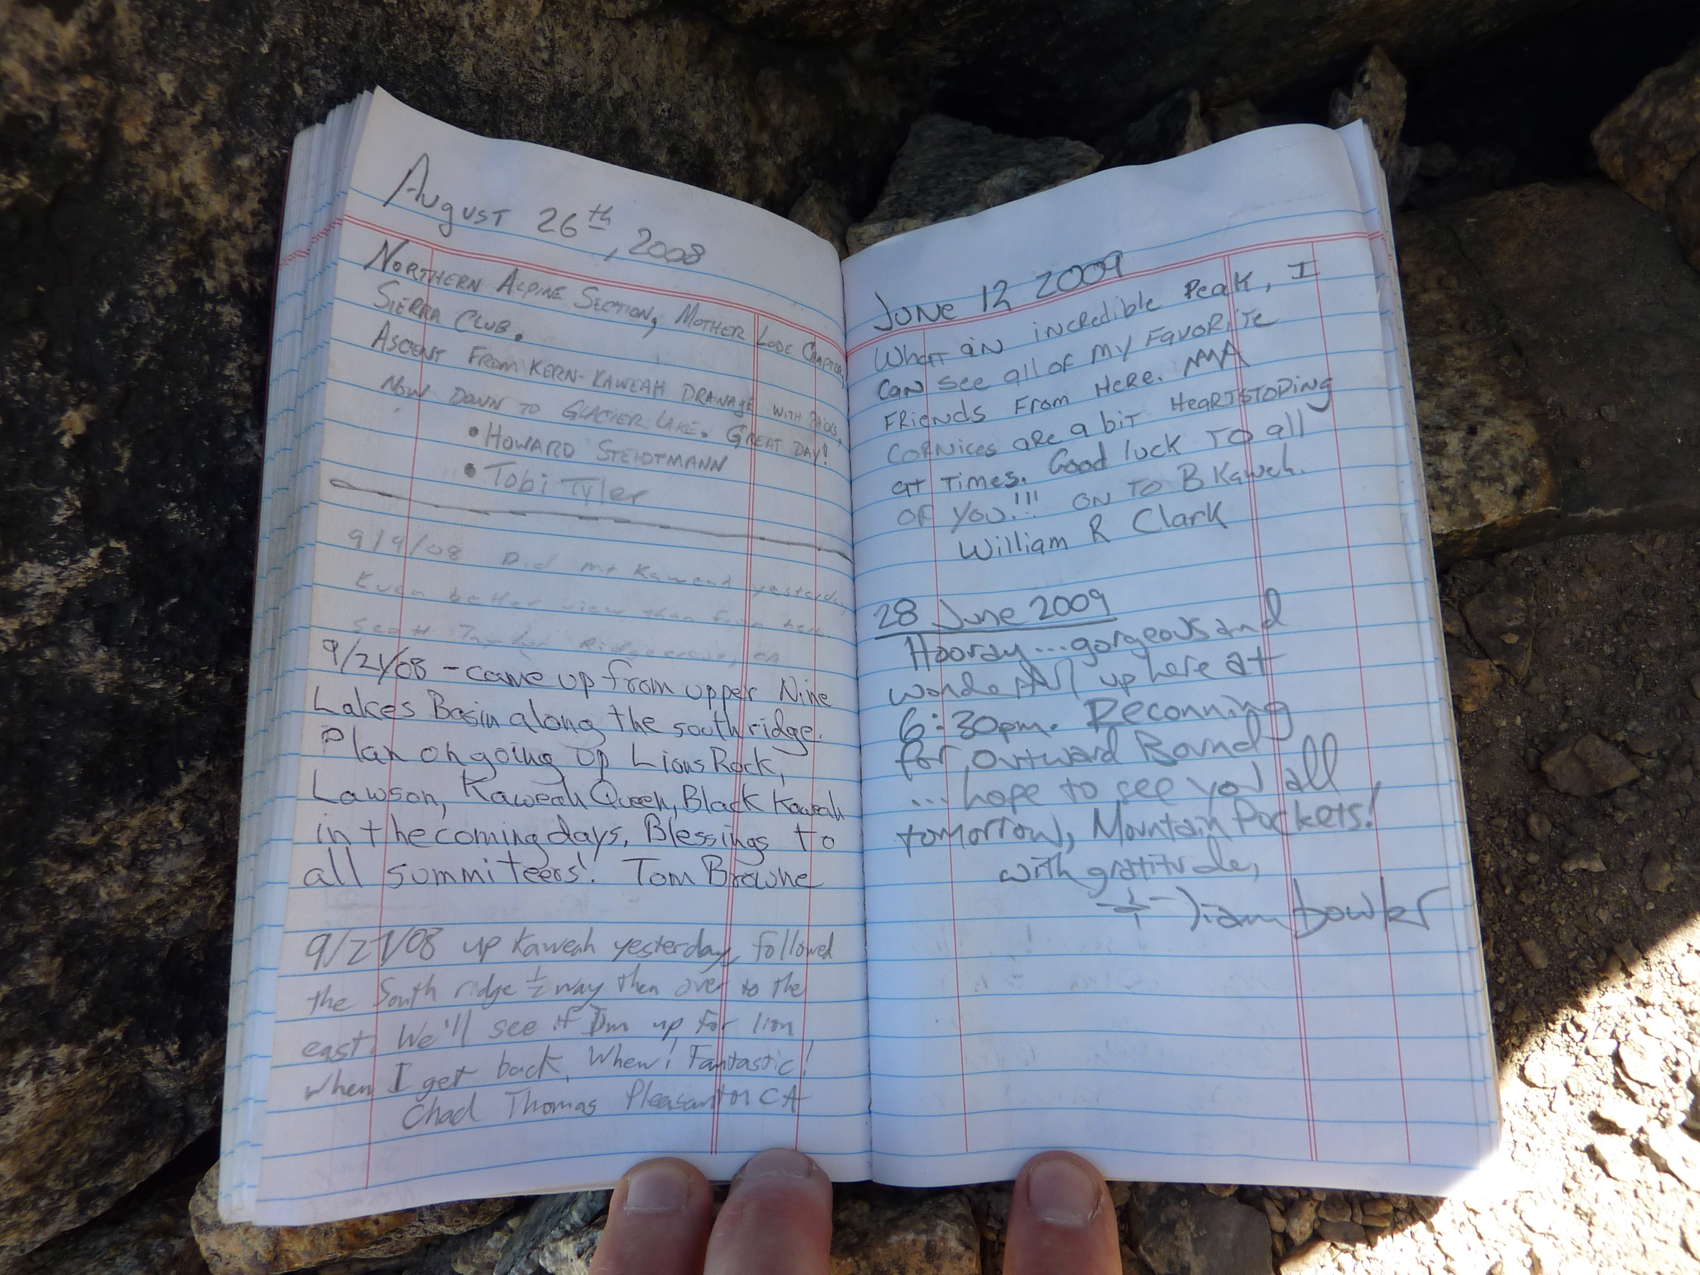 August 26th, 2008
Northern Alpine Section, Mother Lode Chapter,
Sierra Club.
Ascent from Kern-Kaweah Drainage with packs,
Now down to Glacier Lake. Great day!
• Howard Steidtmann
• Tobi Tyler
9/9/08 Did Mt Kaweah yesterday,
Even better view than from here.
Scott Taylor Ridgecrest, CA
9/21/08 - came up from upper Nine
Lakes Basin along the south ridge.
Plan on going up Lions Rock,
Lawson, Kaweah Queen, Black Kaweah
in the coming days, Blessings to
all summiteers! Tom Browne
9/21/08 up Kaweah yesterday, followed
the South ridge 1/2 way then over to the
east. We'll see if I'm up for lion
when I get back. Whew! Fantastic!
Chad Thomas Pleasanton CA
June 12 2009
What an incredible Peak, I
can see all of my favorite
Friends From Here.
Cornices are a bit Heartstoping
at times. Good luck to all
of you!!! on to B Kaweh.
William R Clark
28 June 2009
Hooray...gorgeous and
wonderful up here at
6:30pm. Reconning
for Outward Bound
... hope to see you all
tomorrow, Mountain Pockets!
with gratitude,